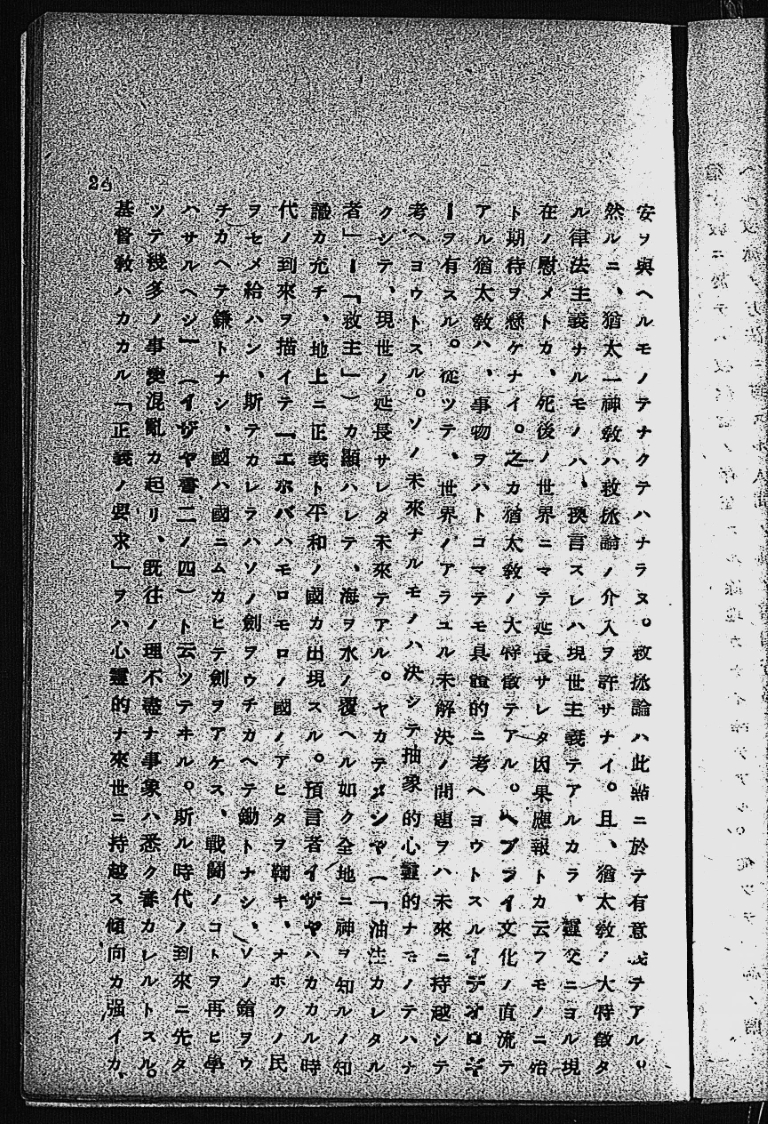 安ヲ與ヘルモノテナクテハナラヌ。救拯論ハ此點ニ於テ有意義テアル。
然ルニ、猶太一神敎ハ救拯論ノ介入ヲ許サナイ。且、猶太敎ノ大特徵タ
ル律法主義ナルモノハ、換言スレハ現世主義テアルカラ、靈交ニヨル現
在ノ慰メトカ、死後ノ世界ニマテ延長サレタ因果應報トカ云フモノニ殆
ト期待ヲ懸ケナイ。之カ猶太敎ノ大特徵テアル。ヘブライ文化ノ直流テ
アル猶太敎ハ、事物ヲハトコマテモ具體的ニ考ヘヨウトスルイデオロギ
ーヲ有スル。從ツテ、世界ノアラユル未解決ノ問題ヲハ未來ニ持越シテ
考ヘヨウトスル。ソノ未來ナルモノハ決シテ抽象的心靈的ナモノテハナ
クシテ、現世ノ延長サレタ未來テアル。ヤカテメシヤ(「油注カレタル
者」ー「救主」)カ顯ハレテ、海ヲ水ノ覆ヘル如ク全地ニ神ヲ知ルノ知
識カ充チ、地上ニ正義ト平和ノ國カ出現スル。預言者イザヤハカカル時
代ノ到來ヲ描イテ「エホバハモロモロノ國ノアヒタヲ鞫キ、オホクノ民
ヲセメ給ハン、斯テカレラハソノ劍ヲウチカヘテ鋤トナシ、ソノ鎗ヲウ
チカヘテ鎌トナシ、國ハ國ニムカヒテ劍ヲアケス、戰鬪ノコトヲ再ヒ學
ハサルヘシ」(イザヤ書二ノ四)ト云ツテヰル。斯ル時代ノ到來ニ先タ
ツテ幾多ノ事變混亂カ起リ、既往ノ理不盡ナ事象ハ悉ク審カレルトスル。
基督敎ハカカル「正義ノ要求」ヲハ心靈的ナ來世ニ持越ス傾向カ强イカ、